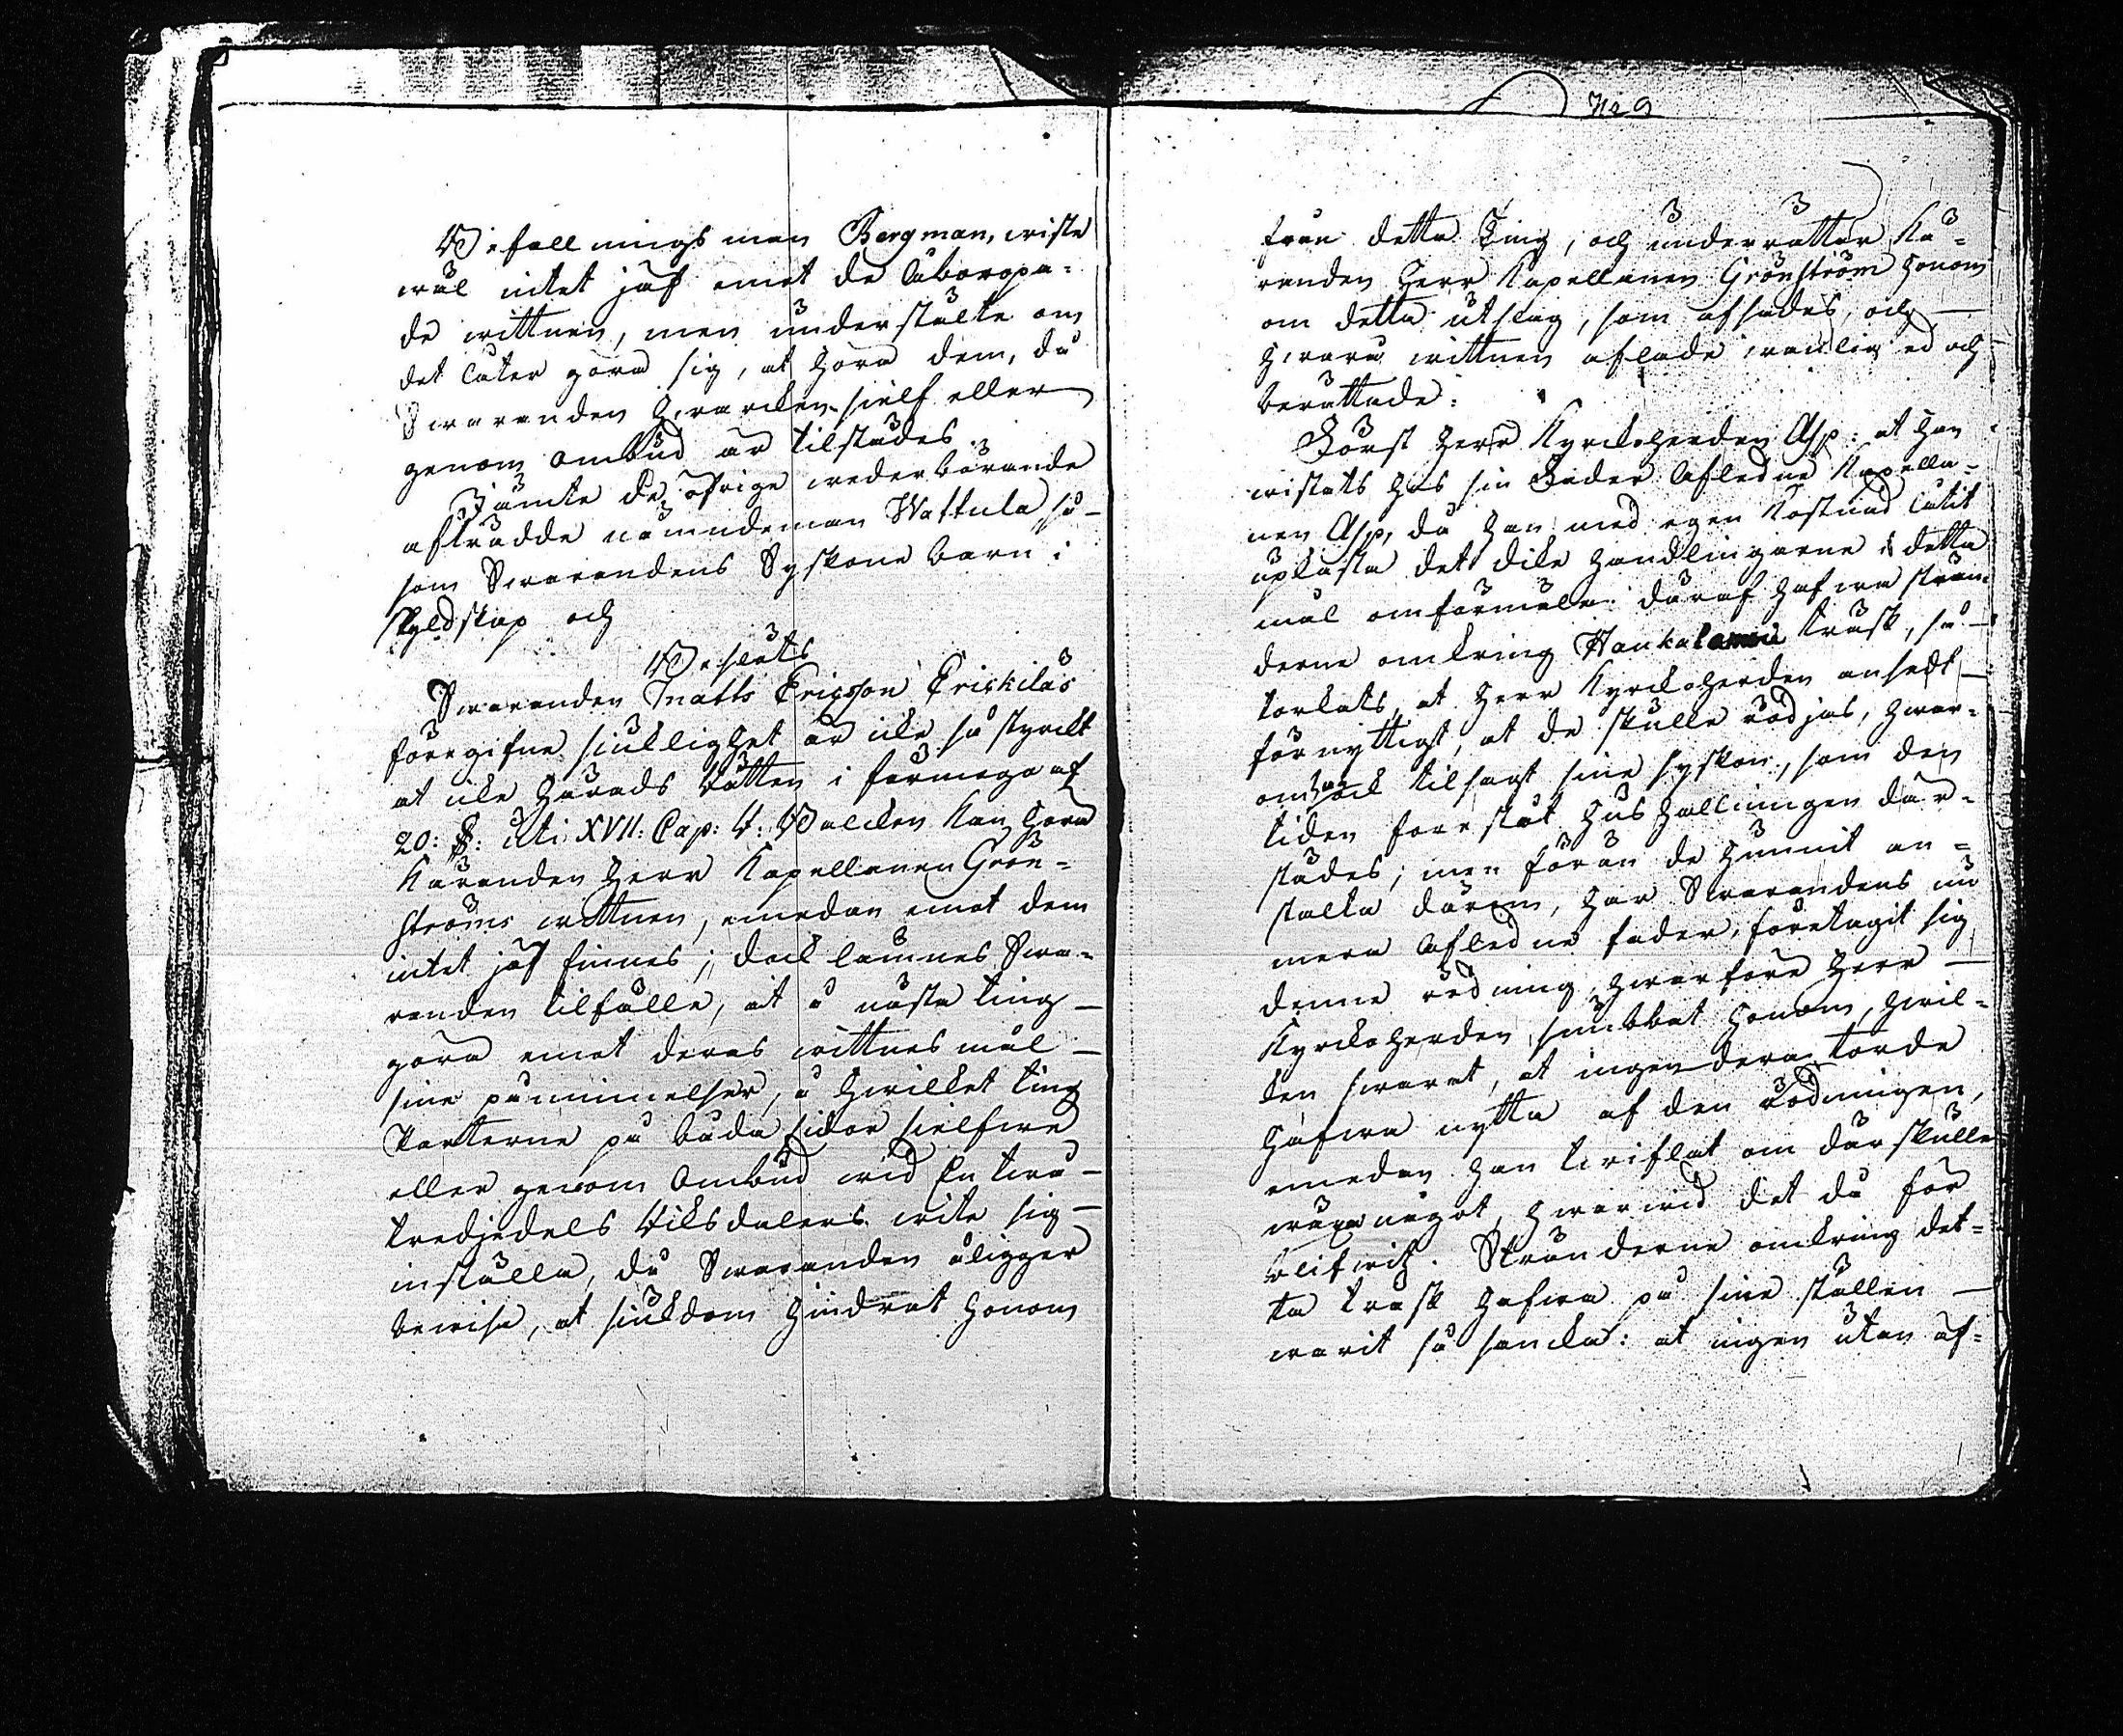 Befallningsman Bergman, wiste
wäl intet jäf emot de åberopa=
de wittnen, men understälte om
det låter göra sig, at höra dem, då
Swaranden hwarcken sielf eller
genom ombud är tilstädes.
Jämte de öfrige wederbörande
afträdde nämndeman Wattula så-
som Swarandens Syskone barn i
Skyldskap och
Beslöts
Swaranden Matts Ericsson Erickilas
föregifne siuklighet är icke så styrckt
at icke Härads Rätten i förmågo af
20: §: uti XVII: Cap: R: Balcken kan höra
Käranden Herr Kapellanen Grön=
ströms wittnen, emedan emot dem
intet jäf finnes; dock lämnes Swa=
randen tilfälle, at å nästa ting -
göra emot deras wittnes mål -
sine påminnelser, å hwilket ting
Parterne på båda sidor sielfwe
eller genom Ombud wid En twå-
tredjedels Riksdalers wite sig -
inställa, då Swaranden åligger
bewisa, at siukdom hindrat honom
No 9
från detta Ting, och underrättar Kä=
randen Herr Kapellanen Grönström honom
om detta utslag, som afsades, och -
hwara wittnen aflade wanlig ed och
berättade:
Först Herr Kyrckoherden Asp: at han
wistats hos sin Fader Afledne Kapella=
nen Asp, då han med egen kostnad låtit
upkasta det dike handlingarne i detta
mål omförmäla. Däraf hafwa strän=
derne omkring Haukalammi träsk, så -
torkats, at Herr Kyrckoherden ansedt -
för nyttigt, at de skulle rödjas, hwar=
om han ock tilsagt sine syskon, som den
tiden förestått hushållningen där=
städes; men förän de hunnit an=
stalta därom, har Swarandens nu
mera Afledne fader, företagit sig
denne rödning, hwarföre Herr -
Kyrckoherden snubbat honom, hwil=
ken swarat, at ingendera torde
hafwa nytta af den Rödningen,
emedan han twiflat om där skulle
wäxa något, hwarwid det då för
blifwit. Stränderne omkring det=
ta träsk hafwa på sine ställen -
warit så sancka: at ingen utan af=